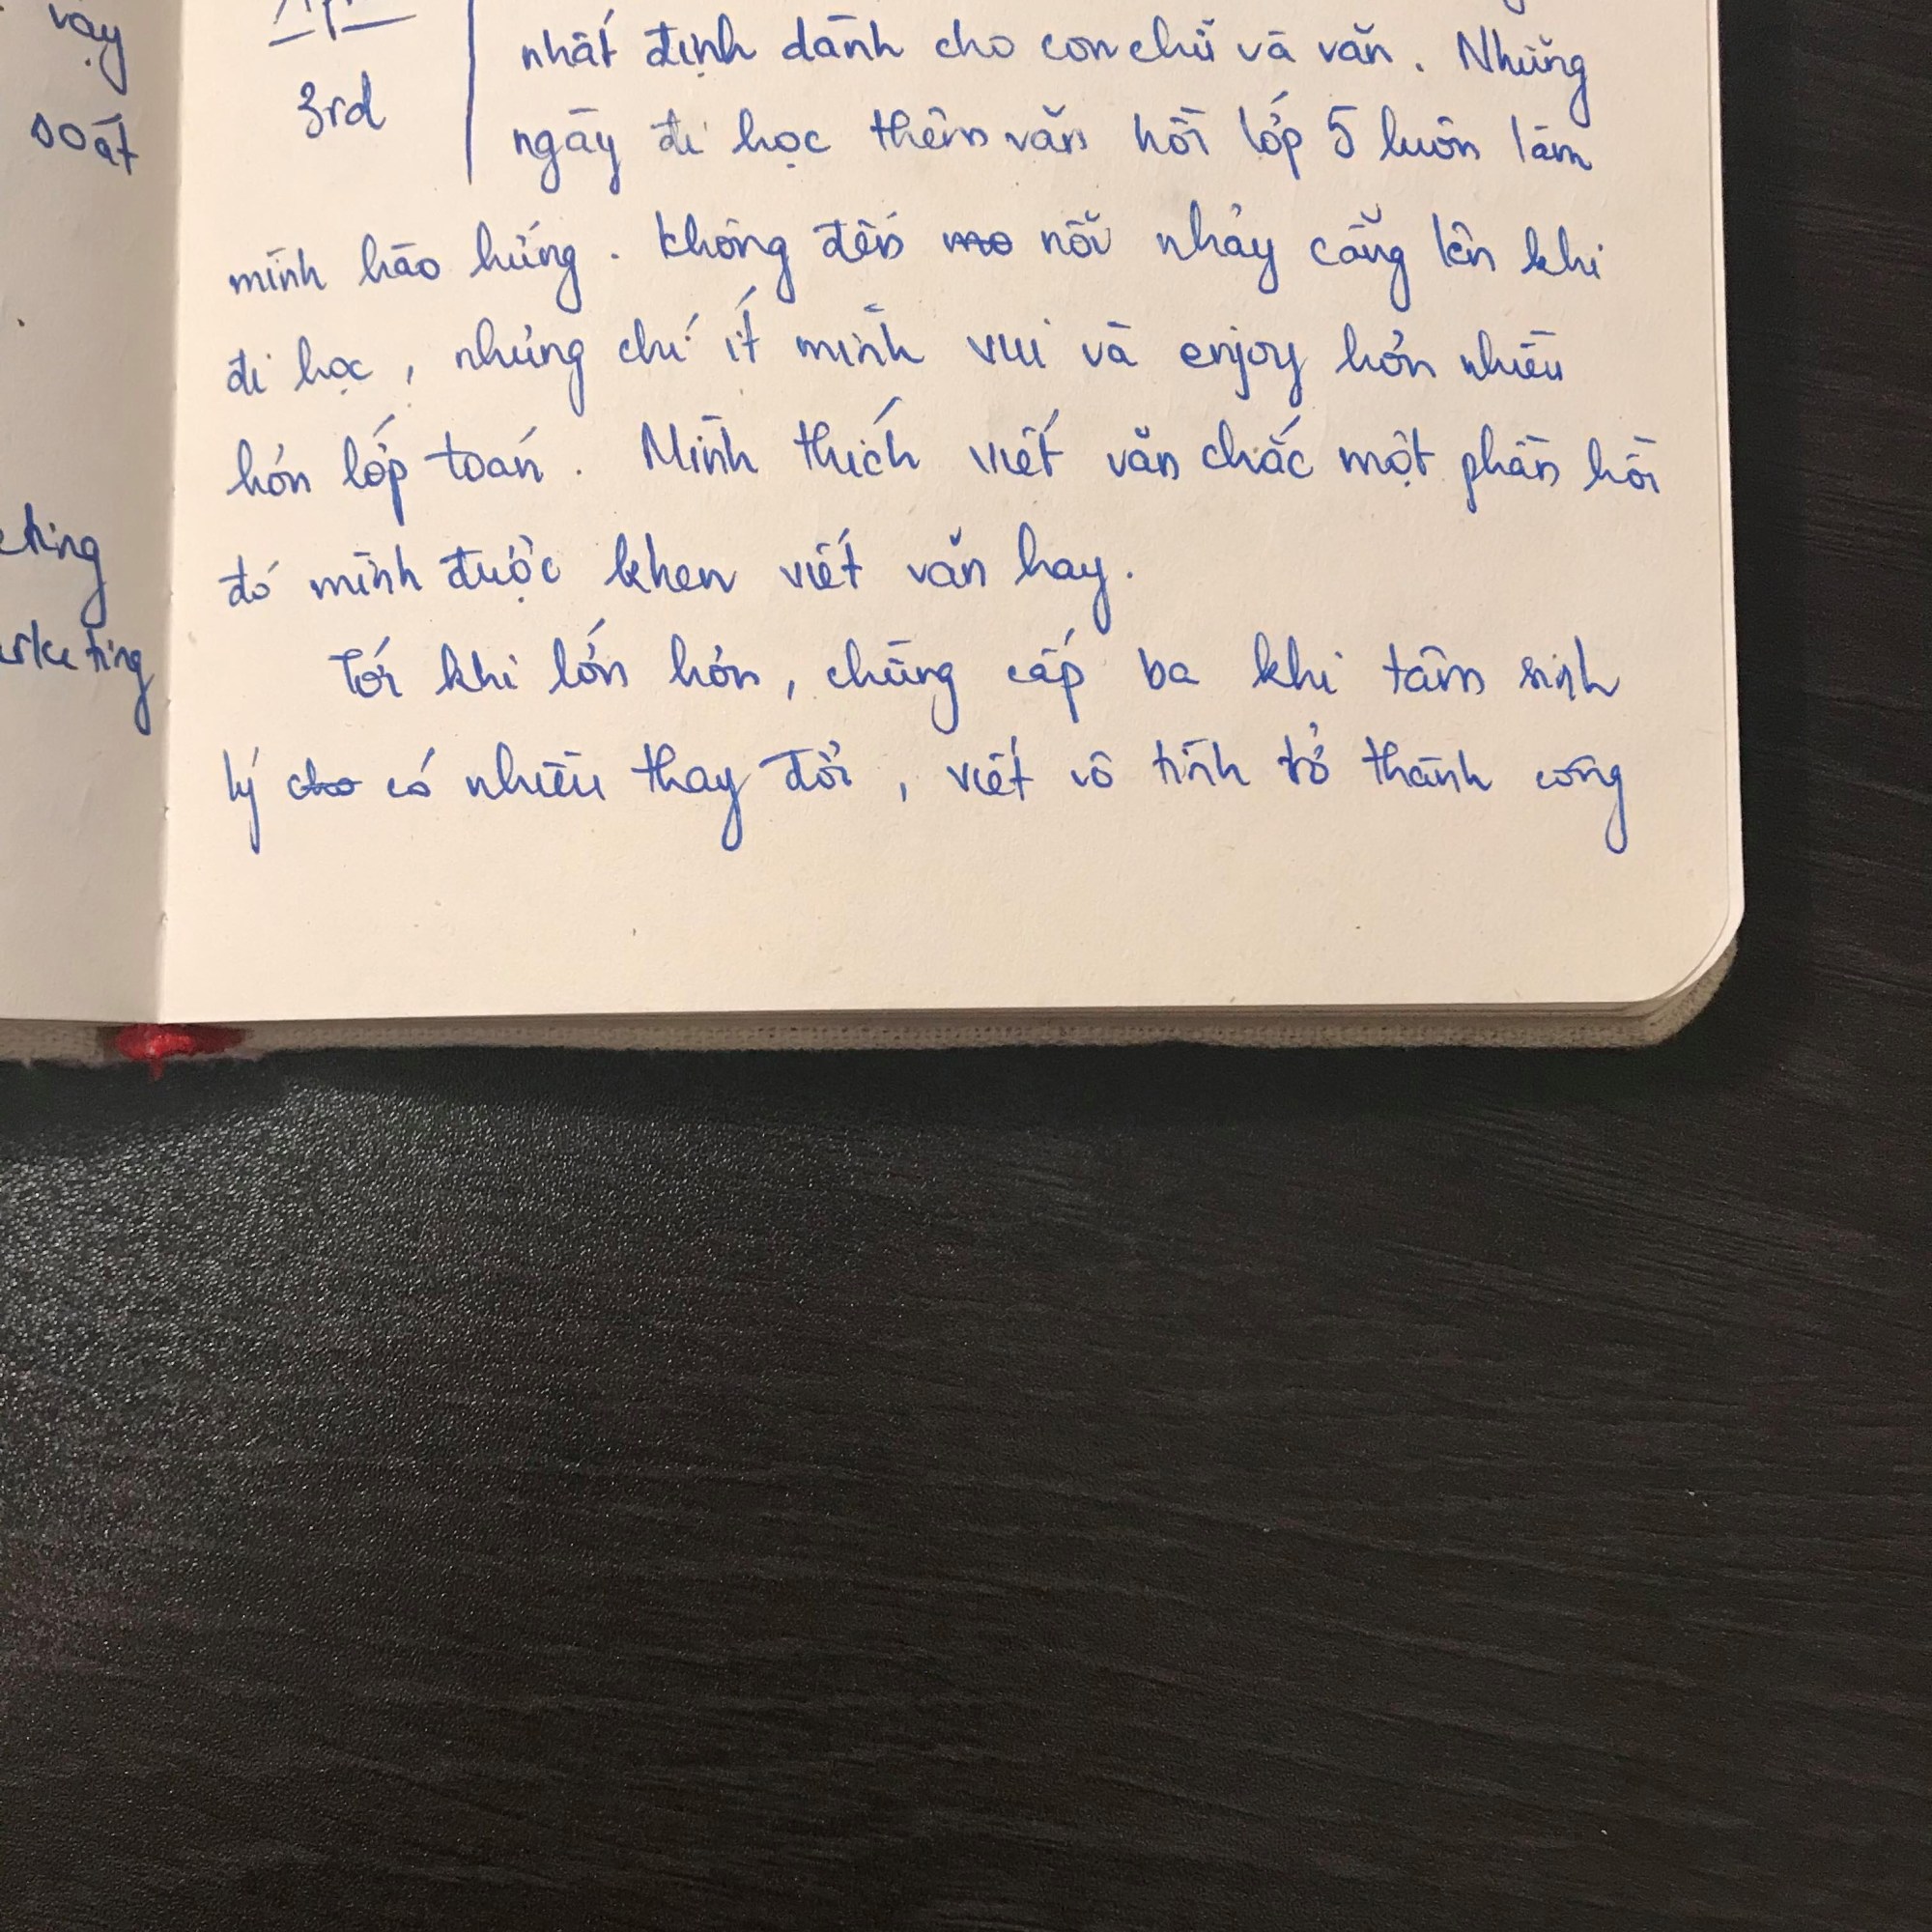 vậy
soát
eting
arketing
3rd
nhất định dành cho con chữ và văn. Những
ngày đi học thêm văn hồi lớp 5 luôn làm
mình hào hứng. Không đến nỗi nhảy cẫng lên khi
đi học, nhưng chí ít mình vui và enjoy hơn nhiều
hơn lớp toán. Mình thích viết văn chắc một phần hồi
đó mình được khen viết văn hay.
Tới khi lớn hơn, chừng cấp ba khi tâm sinh
lý cho có nhiều thay đổi, viết vô tình trở thành công